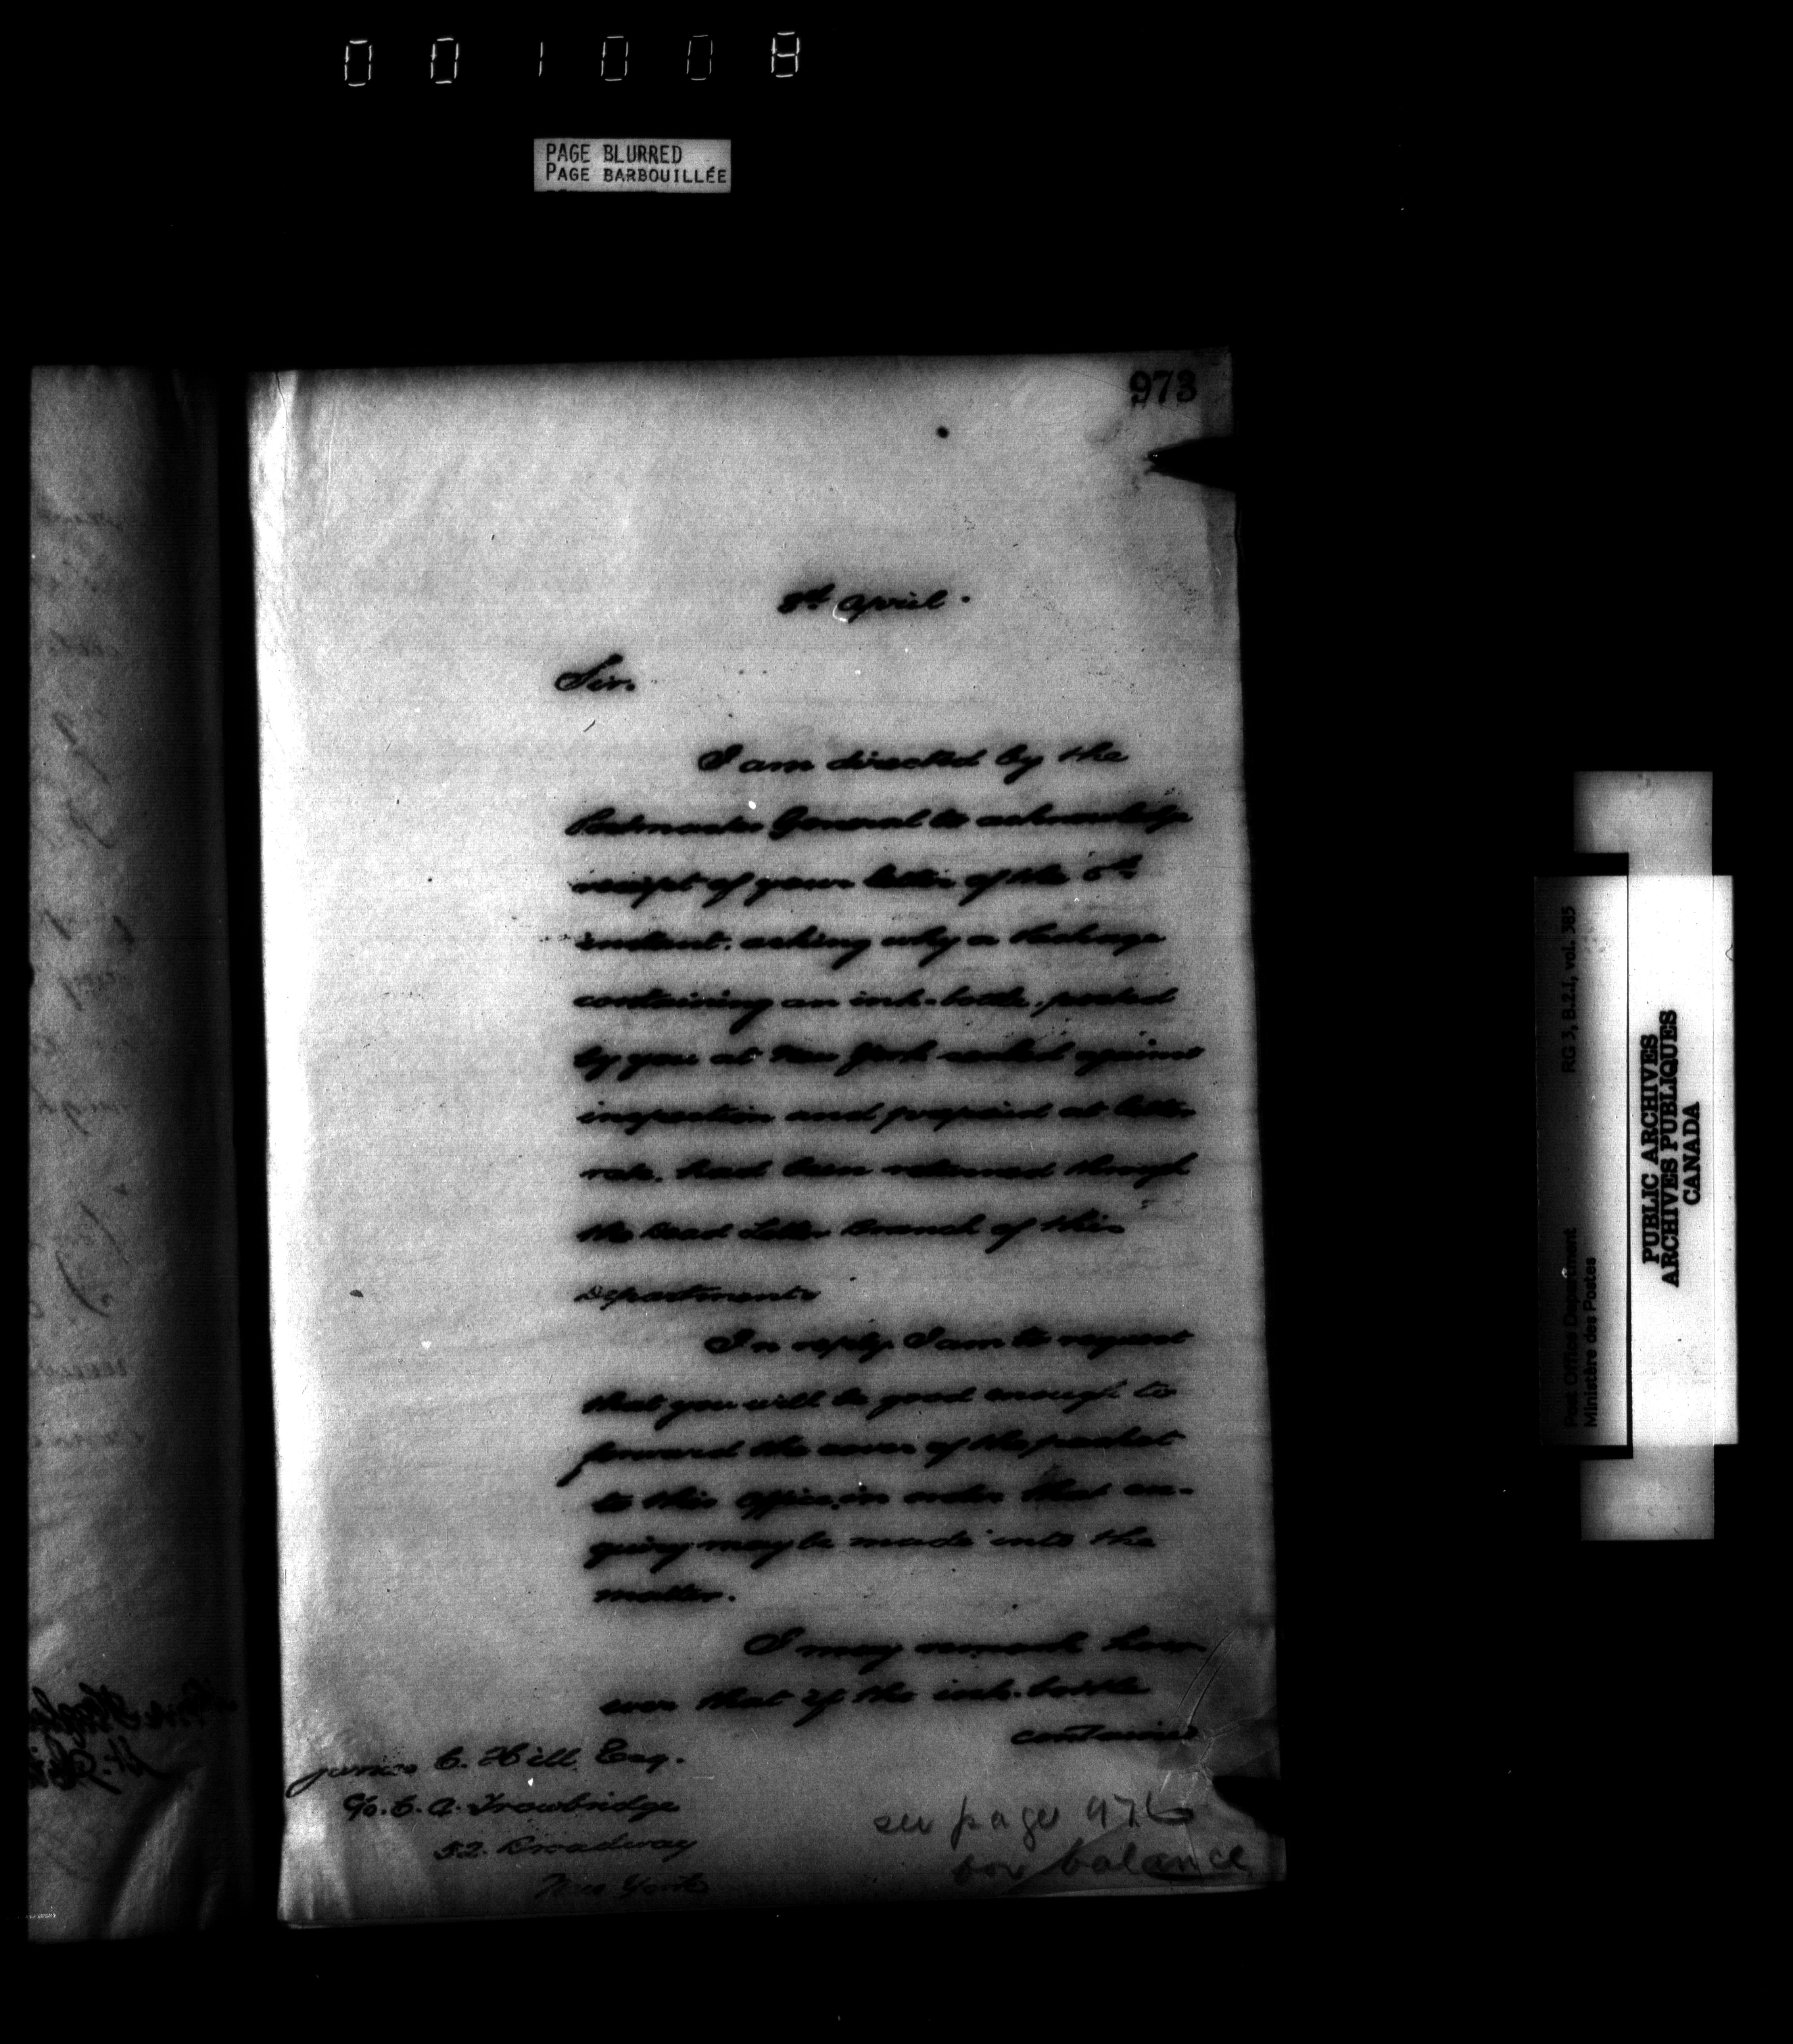 001008
PAGE BLURRED
PAGE BARBOUILLÉE
973
8th April.
Sir.
I am directed by the
Postmaster General to acknowledge
receipt of your letter of the 5th
instant. asking why a Package
containing an ink-bottle. posted
by you at New York sealed against
inspection and prepaid at letter
rate. had been returned through
the Dead Letter Branch of this
Department.
In reply. I am to request
that you will be good enough to
forward the cover of the packet
to this Office, in order that en-
quiry may be made into the
matter.
I may remark how-
ever that if the ink-bottle
contained
James C. Hill Esq.
C/o. C. A. Trowbridge
52. Broadway
New York
see page 976
for balance
Post Office Department RG 3, B.2.I, vol. 385
Ministère des Postes
PUBLIC ARCHIVES
ARCHIVES PUBLIQUES
CANADA